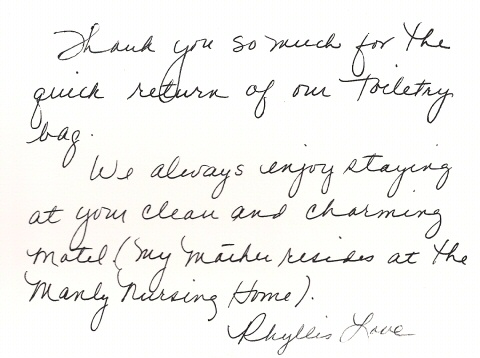 Thank you so much for the
quick return of our Toiletry
bag.
We always enjoy staying
at your clean and charming
motel (My Mother resides at the
Manly Nursing Home).
Phyllis Love